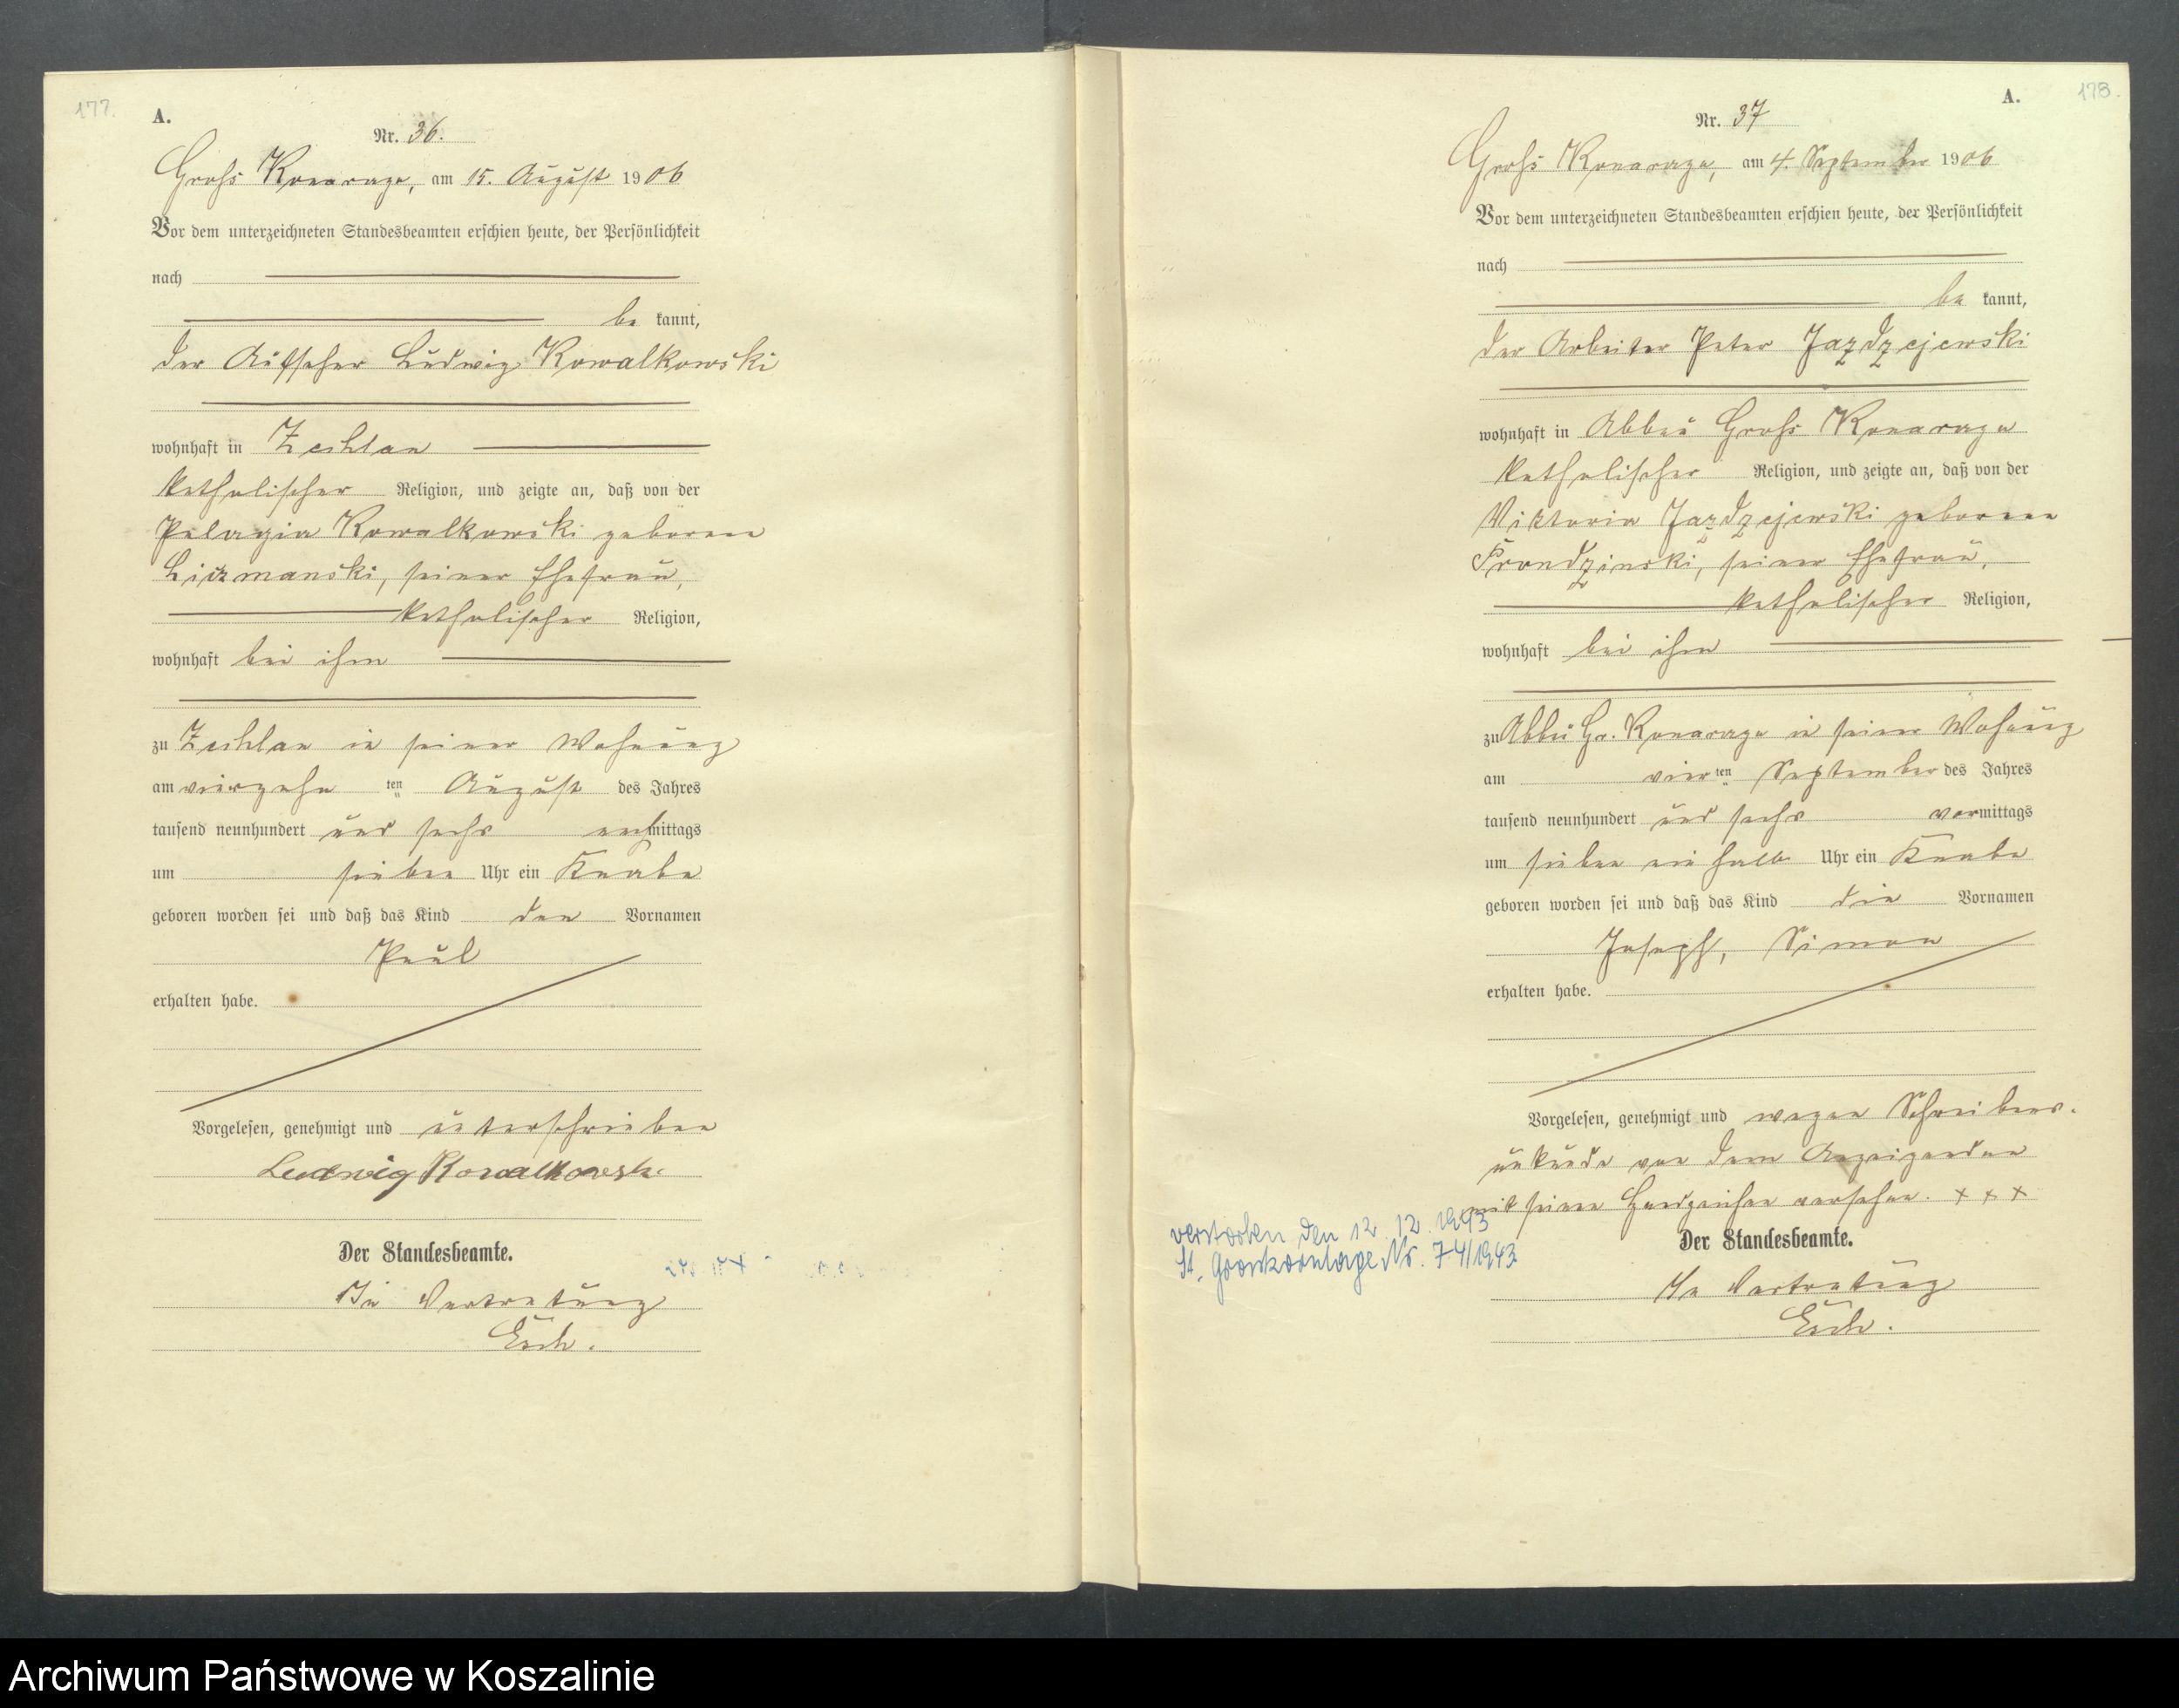 177.
A.
Nr. 36.
Gross Konarzyn, am 15. August 1906
Vor dem unterzeichneten Standesbeamten erschien heute, der Persönlichkeit
nach
be kannt,
der Aufseher Ludwig Kowalkowski
wohnhaft in
katholischer Religion, und zeigte an, daß von der
Pelagia Kowalkowski geborene
seiner Ehefrau,
katholischer Religion,
wohnhaft bei ihm
zu in seiner Wohnung
am vierzehn ten August des Jahres
tausend neunhundert und sechs nachmittags
um sieben Uhr ein Knabe
geboren worden sei und daß das Kind den Vornamen
Paul
erhalten habe.
Vorgelesen, genehmigt und unterschrieben
Ludwig Kowalkowski
Der Standesbeamte.
In Vertretung
178.
A.
Nr. 37
Gross Konarzyn, am 4. September 1906
Vor dem unterzeichneten Standesbeamten erschien heute, der Persönlichkeit
nach
be kannt,
der Arbeiter Peter Jazdzejewski
wohnhaft in Abbau Gross Konarzyn
katholischer Religion, und zeigte an, daß von der
Viktoria Jazdzejewski geborene
seiner Ehefrau,
katholischer Religion,
wohnhaft bei ihm
zu Abbau Gr. Konarzyn in seiner Wohnung
am vier ten September des Jahres
tausend neunhundert und sechs vormittags
um sieben ein halb Uhr ein Knabe
geboren worden sei und daß das Kind die Vornamen
Joseph, Simon
erhalten habe.
Vorgelesen, genehmigt und wegen Schreibens-
unkunde von dem Anzeigenden
mit seinem Handzeichen versehen. + + +
verstorben den 12.12.1943
St. Nr. 74/1943
Der Standesbeamte.
In Vertretung
Archiwum Państwowe w Koszalinie